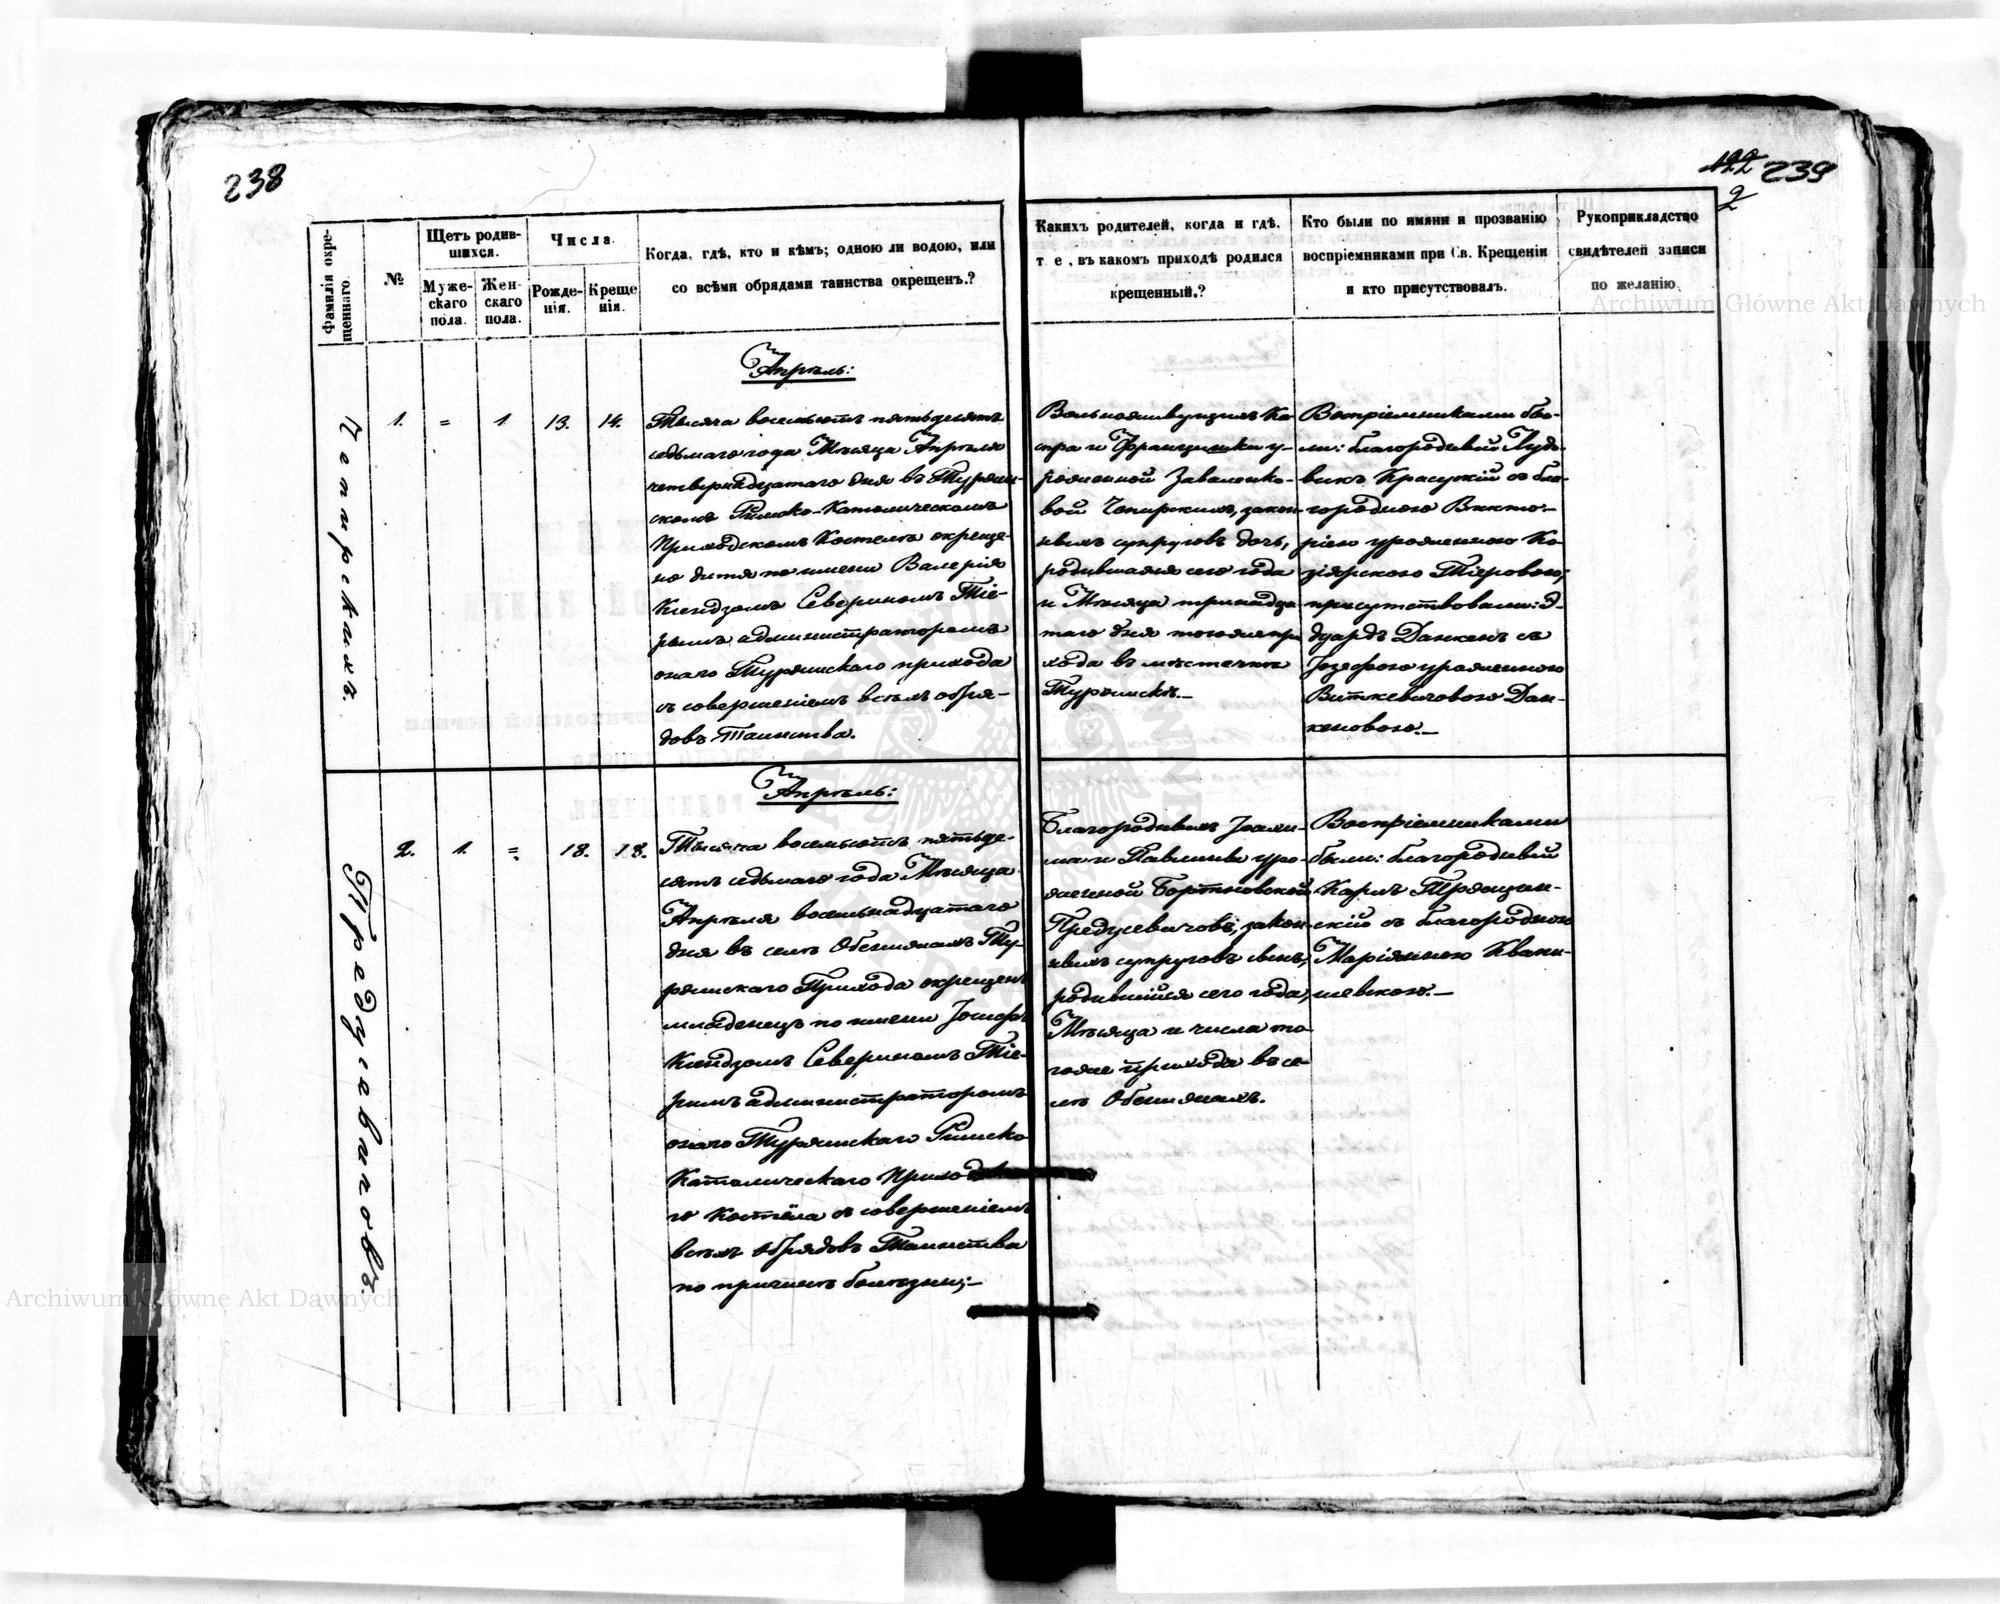 238
122 239
2
Фамилія окре-
щеннаго.
№
Щетъ родив-
шихся.
Муже-
скаго
пола.
Жен-
скаго
пола.
Числа.
Рожде-
нія.
Креще
нія.
Когда, гдѣ, кто и кѣмъ; одною ли водою, или
со всѣми обрядами таинства окрещенъ.?
Каких родителей, когда и гдѣ,
т. е., въ какомъ приходѣ родился
крещенный.?
Кто были по имяни и прозванію
воспріемниками при Св. Крещеніи
и кто присутствовалъ.
Рукоприкладство
свидѣтелей записи
по желанію.
1.
=
1
13.
14.
Апрѣль:
Тысяча восемьсотъ пятьдесятъ
седьмаго года Мѣсяца Апрѣля
четвернадцатаго дня въ Турійс-
скомъ Римско-Католическомъ
Приходскомъ Костелѣ окреще-
но дитя по имени Валерія
Ксендзомъ Севериномъ
администраторомъ
онаго Турійскаго прихода
съ совершеніемъ всѣхъ обря-
довъ Таинства.
Вольноживущихъ Ка-
спра и Францишки у-
рожденной Заваленко-
вой закон-
ныхъ супруговъ дочь,
родившаяся сего года
и Мѣсяца тринадца-
таго дня тогожъ при
хода въ мѣстечкѣ
Турійскѣ.—
Воспріемниками бы-
ли: благородный Луд-
викъ Красускій съ бла-
городною Викто-
ріею урожденною Ко-
присутствовали: Э-
дуардъ Данкенъ съ
Іозефою урожденною
Виткевичовою Дан-
кеновою.—
2.
1.
=
18.
18.
Апрѣль:
Тысяча восемьсотъ пятьде-
сятъ седьмаго года Мѣсяца
Апрѣля восемьнадцатаго
дня въ селѣ Обенижахъ Ту-
рійскаго Прихода окрещенъ
младенецъ по имени Іосифъ
Ксендзомъ Севериномъ
администраторомъ
онаго Турійскаго Римско
Католическаго Приход
го Костёла съ совершеніемъ
всѣхъ обрядовъ Таинства
по причинѣ болѣзни;—
Благородныхъ Іоахи-
ма и Павлины уро-
жденной Бортновской
Предусевичовъ, закон-
ныхъ супруговъ сынъ,
родившійся сего года,
Мѣсяца и числа то
гоже прихода въ се-
лѣ Обенижахъ.
Воспріемниками
были: благородный
Карлъ
скій съ благородною
Маріянною Квани-
шевскою.—
Предусевичовъ.
Archiwum Główne Akt Dawnych
Archiwum Główne Akt Dawnych